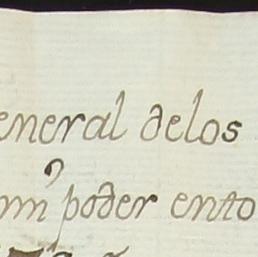 eneral delos
mi poder ento